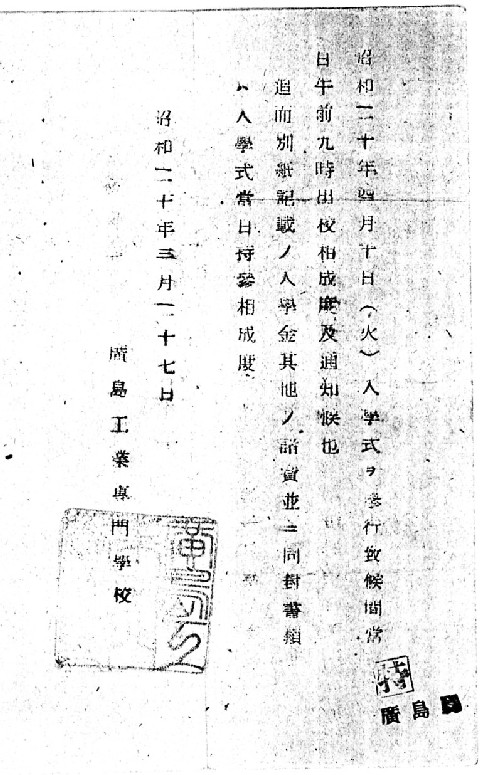 昭和二十年四月十日（火）入學式ヲ挙行致候間當
日午前九時出校相成度及通知候也
追而別紙記載ノ入學金其他ノ諸費並ニ同封書類
ハ入學式當日持參相成度
昭和二十年三月二十七日
廣島工業專門學校
廣島